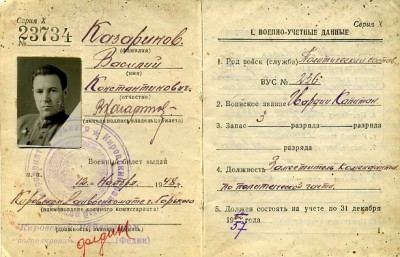 Серия X
№ 23734
Казаринов.
(фамилия)
Василий
(имя)
Константинович.
(отчество)
(личная подпись владельца билета)
Военный билет выдан
12 ноября 1948 г.
Кировским Райвоенкоматом г. Горького
(наименование военного комиссариата)
Серия X
I. ВОЕННО-УЧЕТНЫЕ ДАННЫЕ
1. Род войск (служба) Политический состав
ВУС №
2. Воинское звание Гвардии Капитан
3. Запас 3 разряда разряд
разряда
4. Должность Заместитель Командира
по политической части.
5. Должен состоять на учете до 31 декабря
195 года
57